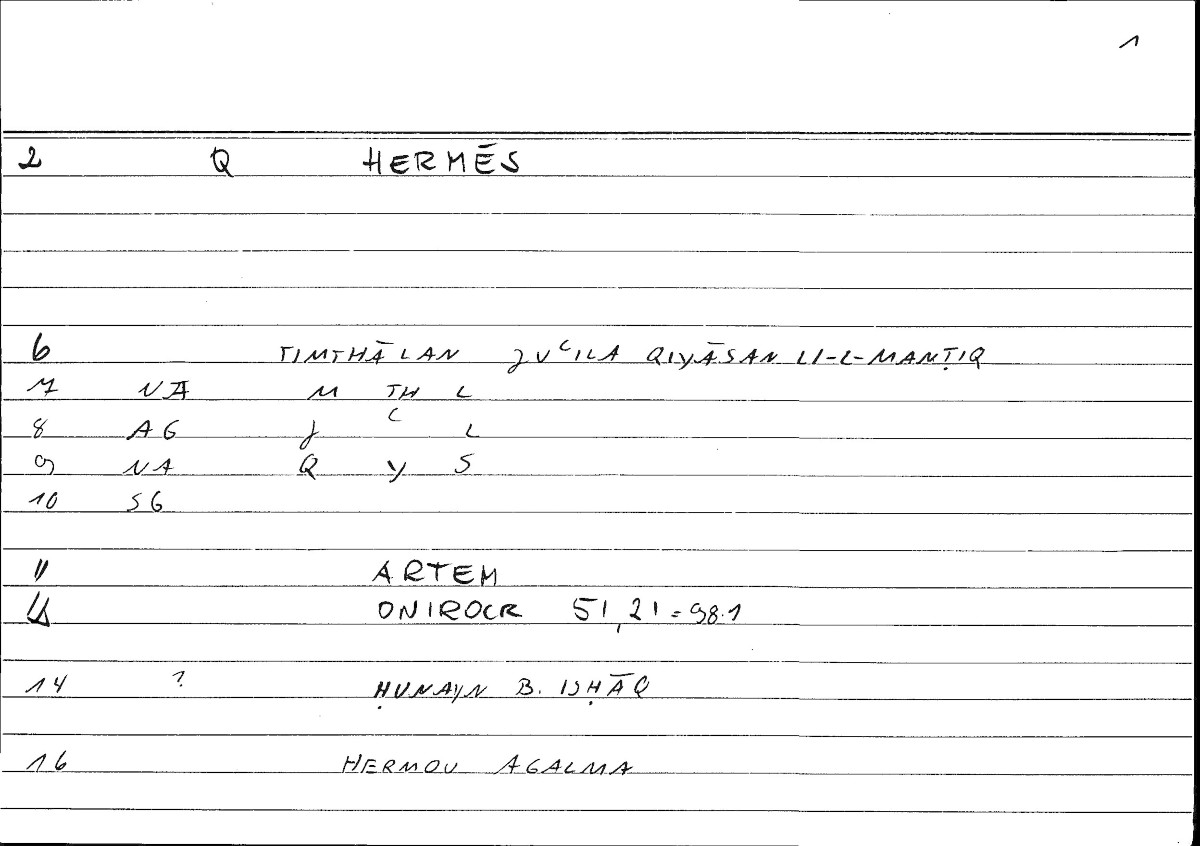 1
2 Q HERMĒS
6 TIMTHĀLAN JUʿILA QIYĀSAN LI-L-MANṬIQ
7 NA M TH L
8 AG J ʿ L
9 NA Q Y S
10 SG
11 ARTEM
ONIROCR 51,21=98.1
14 ? ḤUNAYN B. ISḤĀQ
16 HERMOU AGALMA